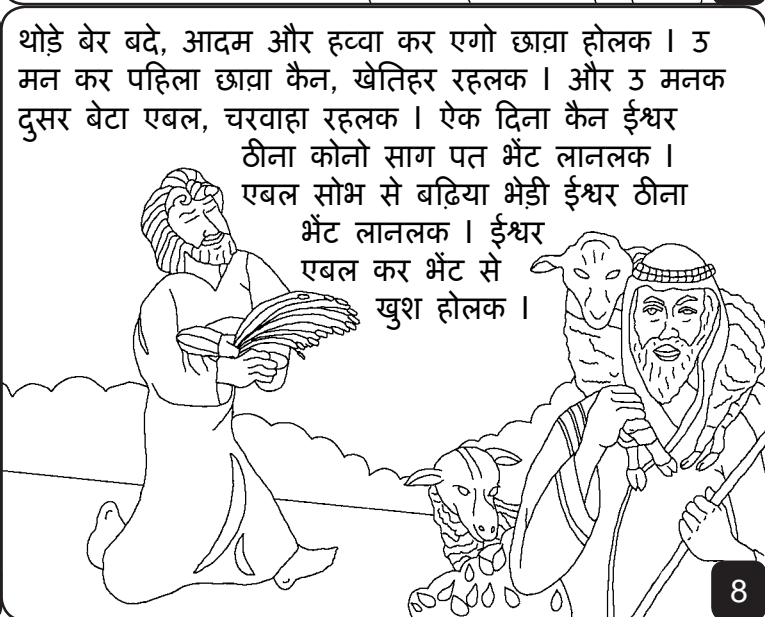 थोड़े बेर बदे, आदम और हव्वा कर एगो छाव़ा होलक । उ
मन कर पहिला छाव़ा कैन, खेतिहर रहलक । और उ मनक
दुसर बेटा एबल, चरवाहा रहलक । ऐक दिना कैन ईश्वर
ठीना कोनो साग पत भेंट लानलक ।
एबल सोभ से बढ़िया भेड़ी ईश्वर ठीना
भेंट लानलक । ईश्वर
एबल कर भेंट से
खुश होलक ।
8